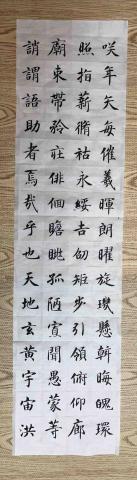 咲年矢每催羲暉朗曜旋璣懸斡晦魄環
照指薪脩祜永綏吉劭矩步引領俯仰廊
廟束帶矜莊俳佪瞻眺孤陋寡聞愚蒙等
誚謂語助者焉哉乎也天地玄黃宇宙洪